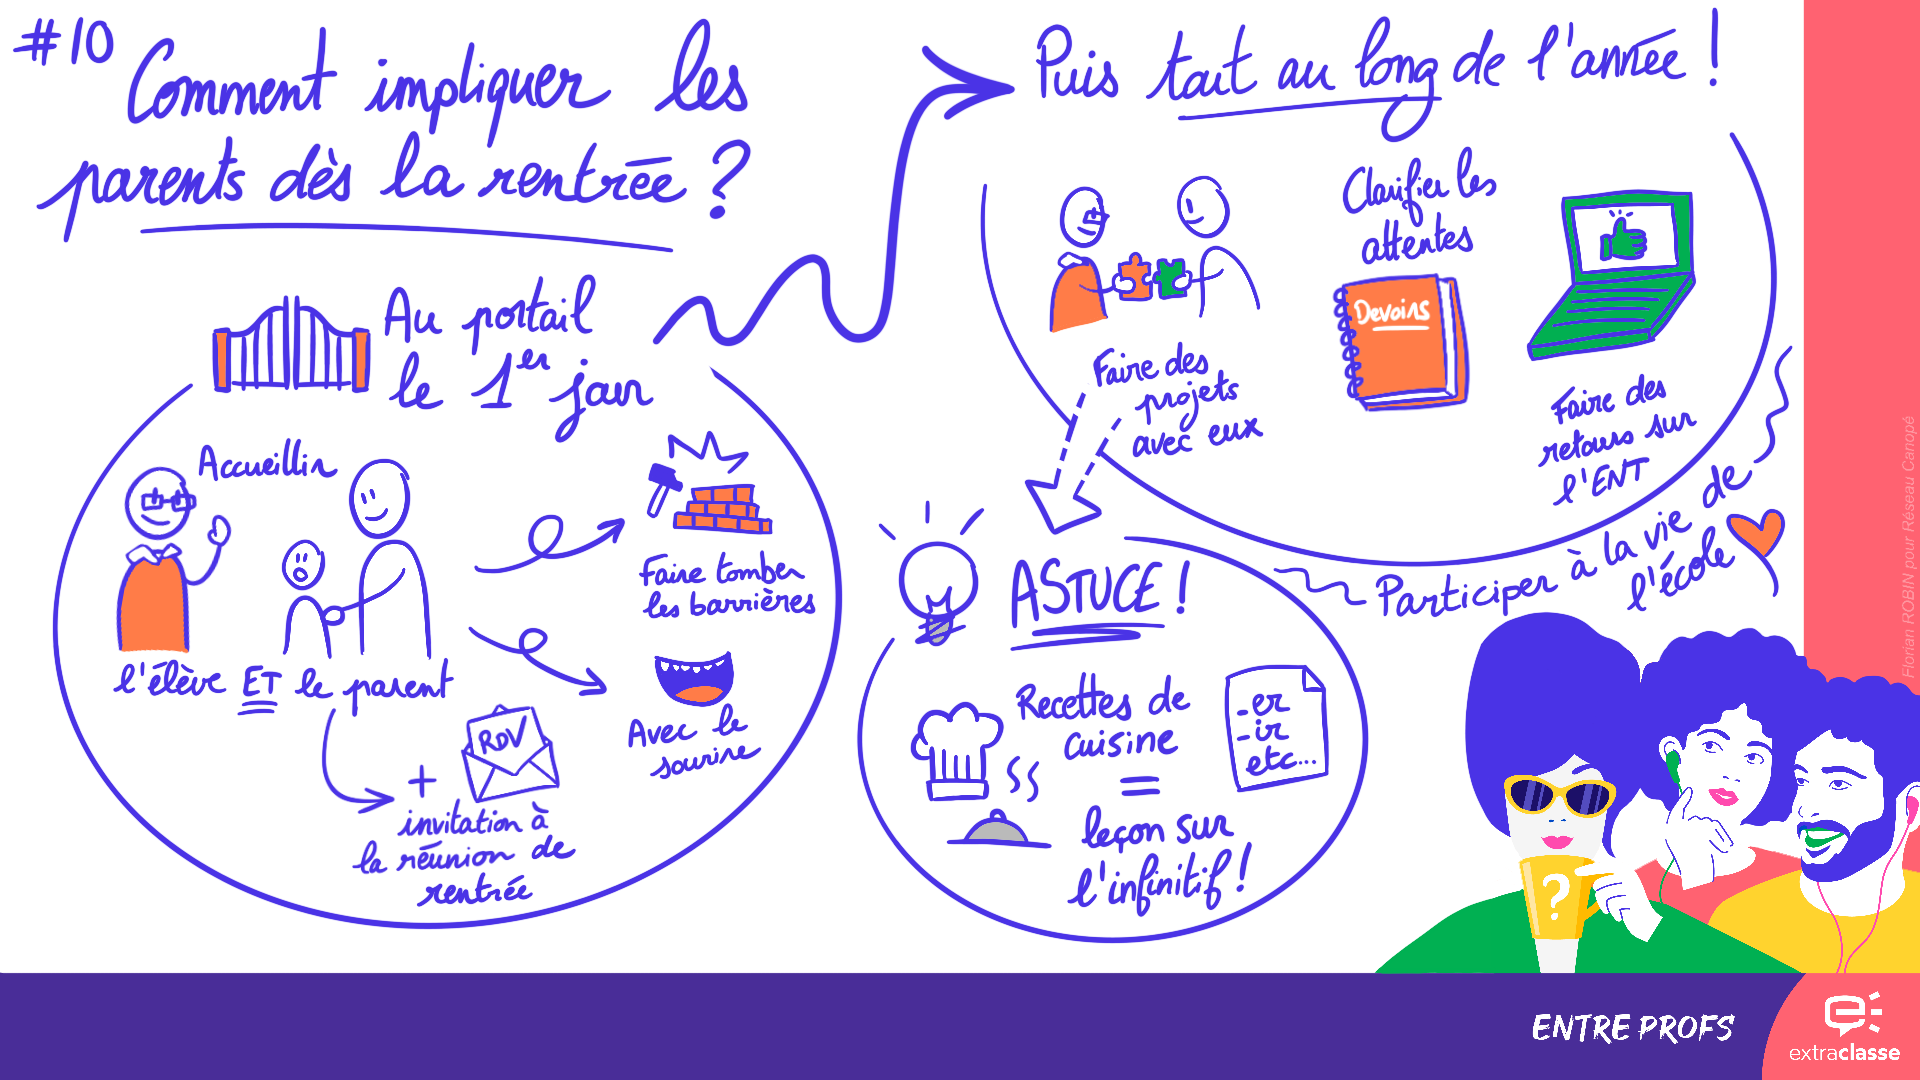 #10
Comment impliquer les
parents dès la rentrée ?
Au portail
le 1er jour
Accueillir
l'élève ET le parent
+
invitation à
la réunion de
rentrée
RDV
Faire tomber
les barrières
Avec le
sourire
Puis tout au long de l'année !
Faire des
projets
avec eux
Clarifier les
attentes
Devoirs
Faire des
retours sur
l'ENT
Participer à la vie de
l'école
ASTUCE !
Recettes de
cuisine
=
leçon sur
l'infinitif !
-er
-ir
etc...
?
Florian ROBIN pour Réseau Canopé
ENTRE PROFS
extraclasse